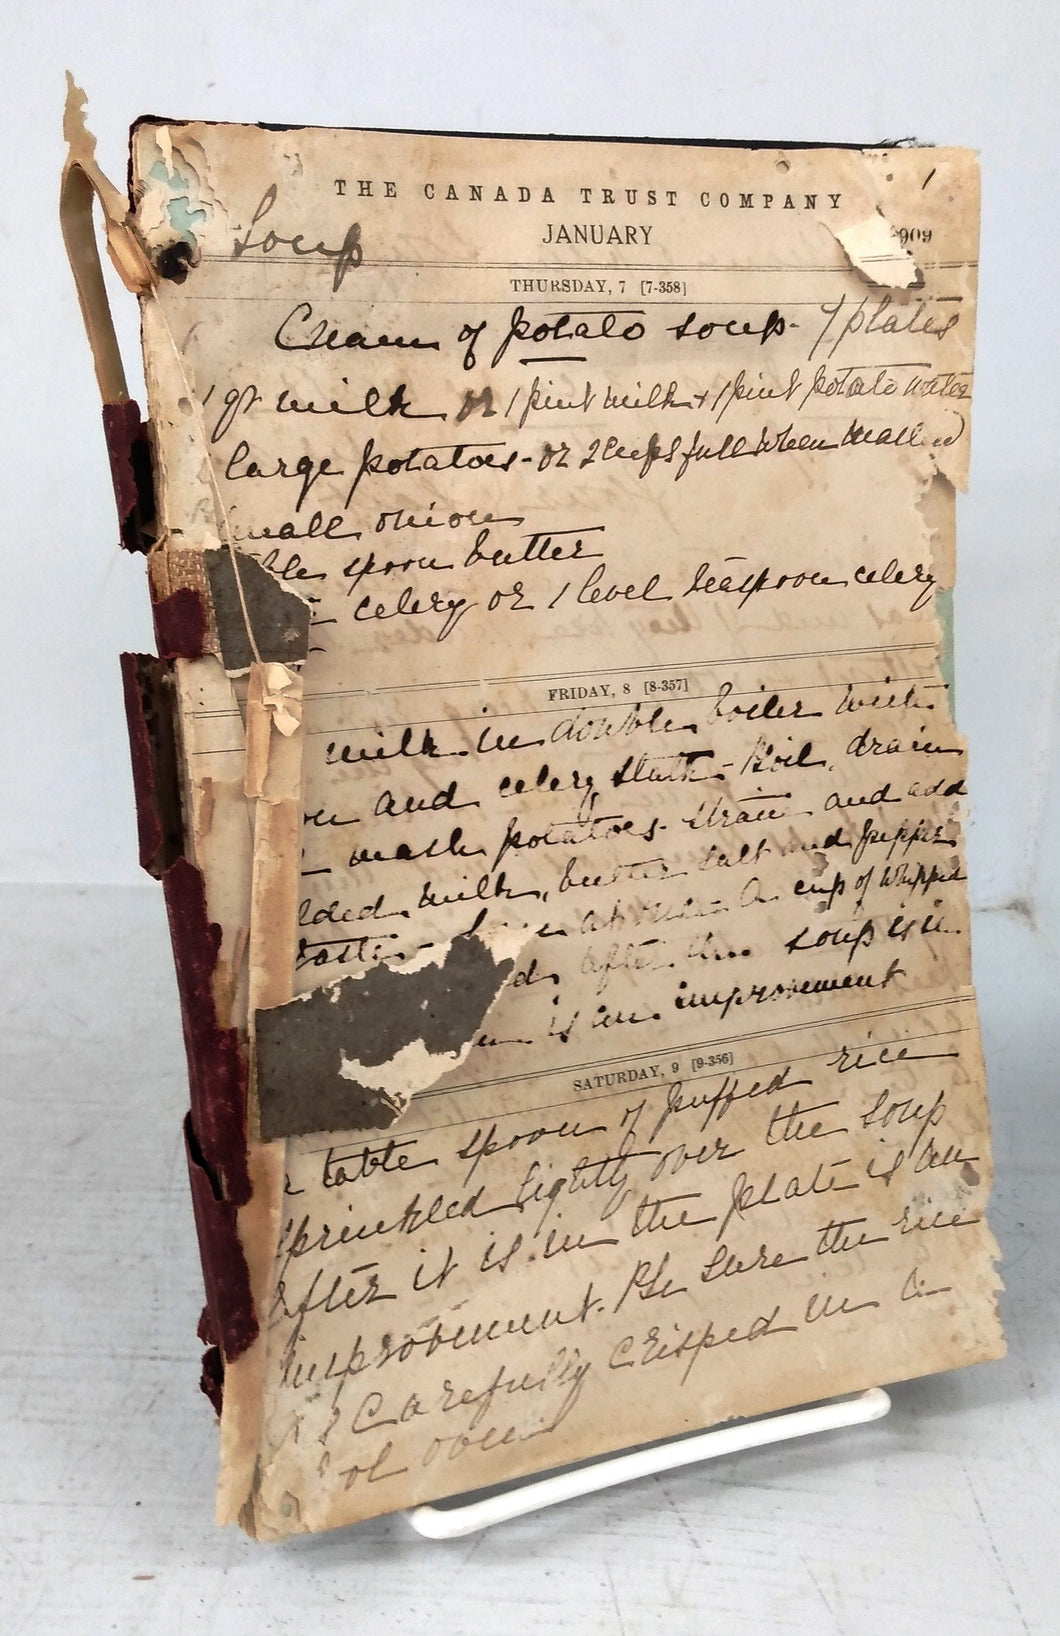 1
THE CANADA TRUST COMPANY
Soup JANUARY 909
THURSDAY, 7 [7-358]
Cream of potato soup - 7 plates
1 qt milk or 1 pint milk + 1 pint potato water
large potatoes - or 2 cups full when mashed
small onion
ble spoon butter
celery or 1 level teaspoon celery
FRIDAY, 8 [8-357]
milk in double boiler with
on and celery stalk - Boil, drain
mash potatoes. Strain and add
lded milk, butter salt and pepper
taste - a cup of whipped
d after the soup is in
is an improvement
SATURDAY, 9 [9-356]
a table spoon of puffed rice
sprinkled lightly over the soup
after it is in the plate is an
improvement. Be sure the rice
is carefully crisped in a
ot oven